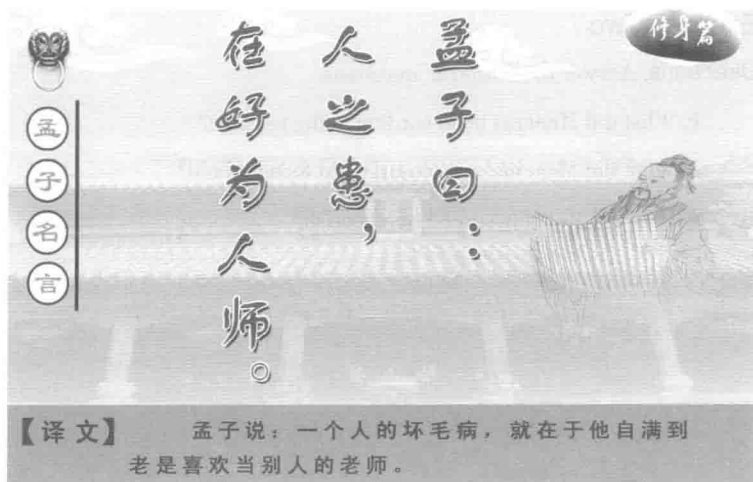 修身篇
孟子曰：
人之患，
在好为人师。
孟子名言
【译文】 孟子说：一个人的坏毛病，就在于他自满到
老是喜欢当别人的老师。